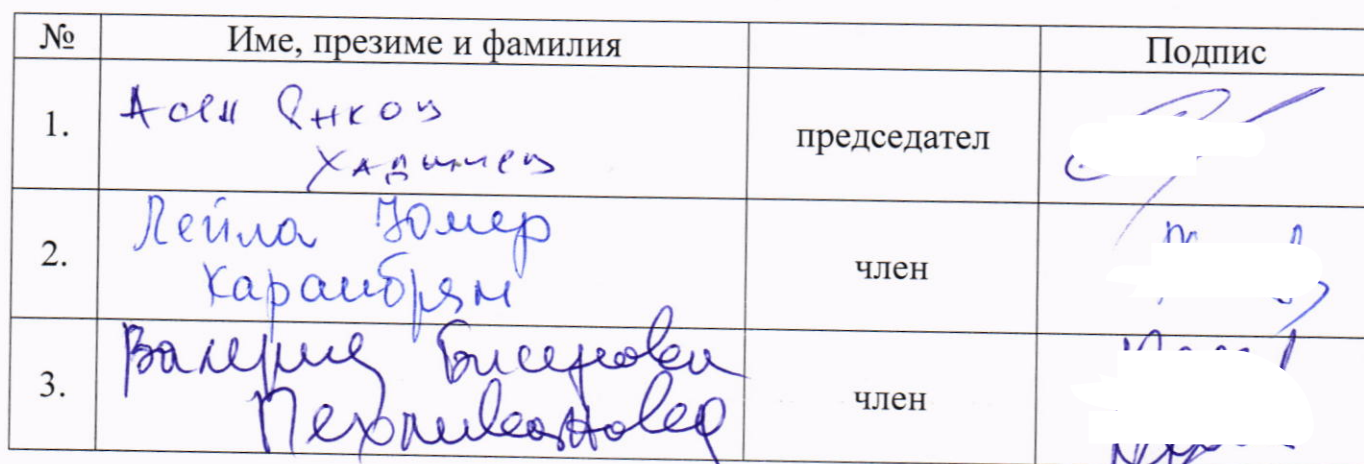 № Име, презиме и фамилия Подпис
1. Асен Янков
Хаджиев
председател
2. Лейла Юмер
Караибрям
член
3. Валерия Бисерова
Пехливанова
член